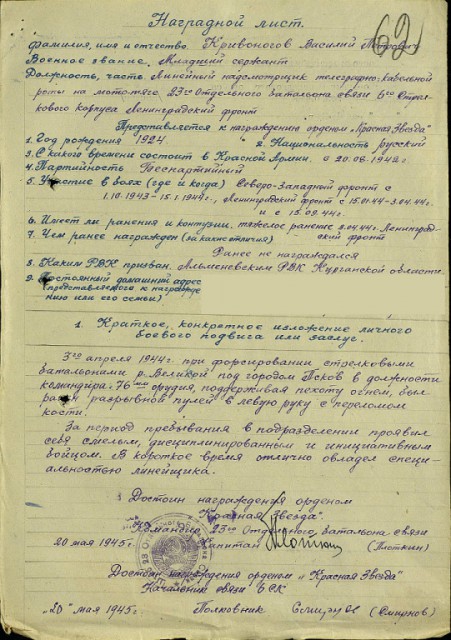 Наградной лист.
62
Фамилия, имя и отчество Кривоногов Василий Петрович
Военное звание, Младший сержант
Должность, часть Линейный надсмотрщик телеграфно-кабельной
роты на мото-мяге 23го Отдельного батальона связи 6го Стрел-
кового корпуса Ленинградский фронт
Представляется к награждению орденом „Красная Звезда"
1. Год рождения 1924 2. Национальность русский
3. С какого времени состоит в Красной Армии. с 20.08.1942 г.
4. Партийность Беспартийный
5. Участие в боях (где и когда) Северо-Западный фронт с
1.10.1943-15.1.1944г., Ленинградский фронт с 15.01.44-3.04.44г.
и с 15.09.44г.
6. Имеет ли ранения и контузии. тяжелое ранение 3.04.44г. Ленинград-
ский фронт
7. Чем ранее награжден (за какие отличия)
Ранее не награждался
8. Каким РВК призван. Альменевским РВК Курганской области.
9. Постоянный домашний адрес
(представляемого к награжде-
нию или его семьи)
1. Краткое, конкретное изложение личного
боевого подвига или заслуг.
3го апреля 1944г. при форсировании стрелковыми
батальонами р. Великой под городом Псков в должности
командира 76 мм орудия, поддерживая пехоту огнем, был
ранен разрывной пулей в левую руку с переломом
кости.
За период пребывания в подразделении проявил
себя смелым, дисциплинированным и инициативным
бойцом. В короткое время отлично овладел специ-
альностью линейщика.
Достоин награждения орденом
„Красная Звезда"
Командир 23го Отдельного батальона связи
20 мая 1945г. Капитан (Плоткин)
Достоин награждения орденом „Красная Звезда"
Начальник связи 6 СК
„20" мая 1945г. Полковник Смирнов (Смирнов)